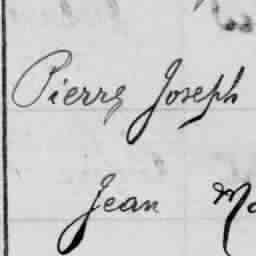 Pierre Joseph
Jean